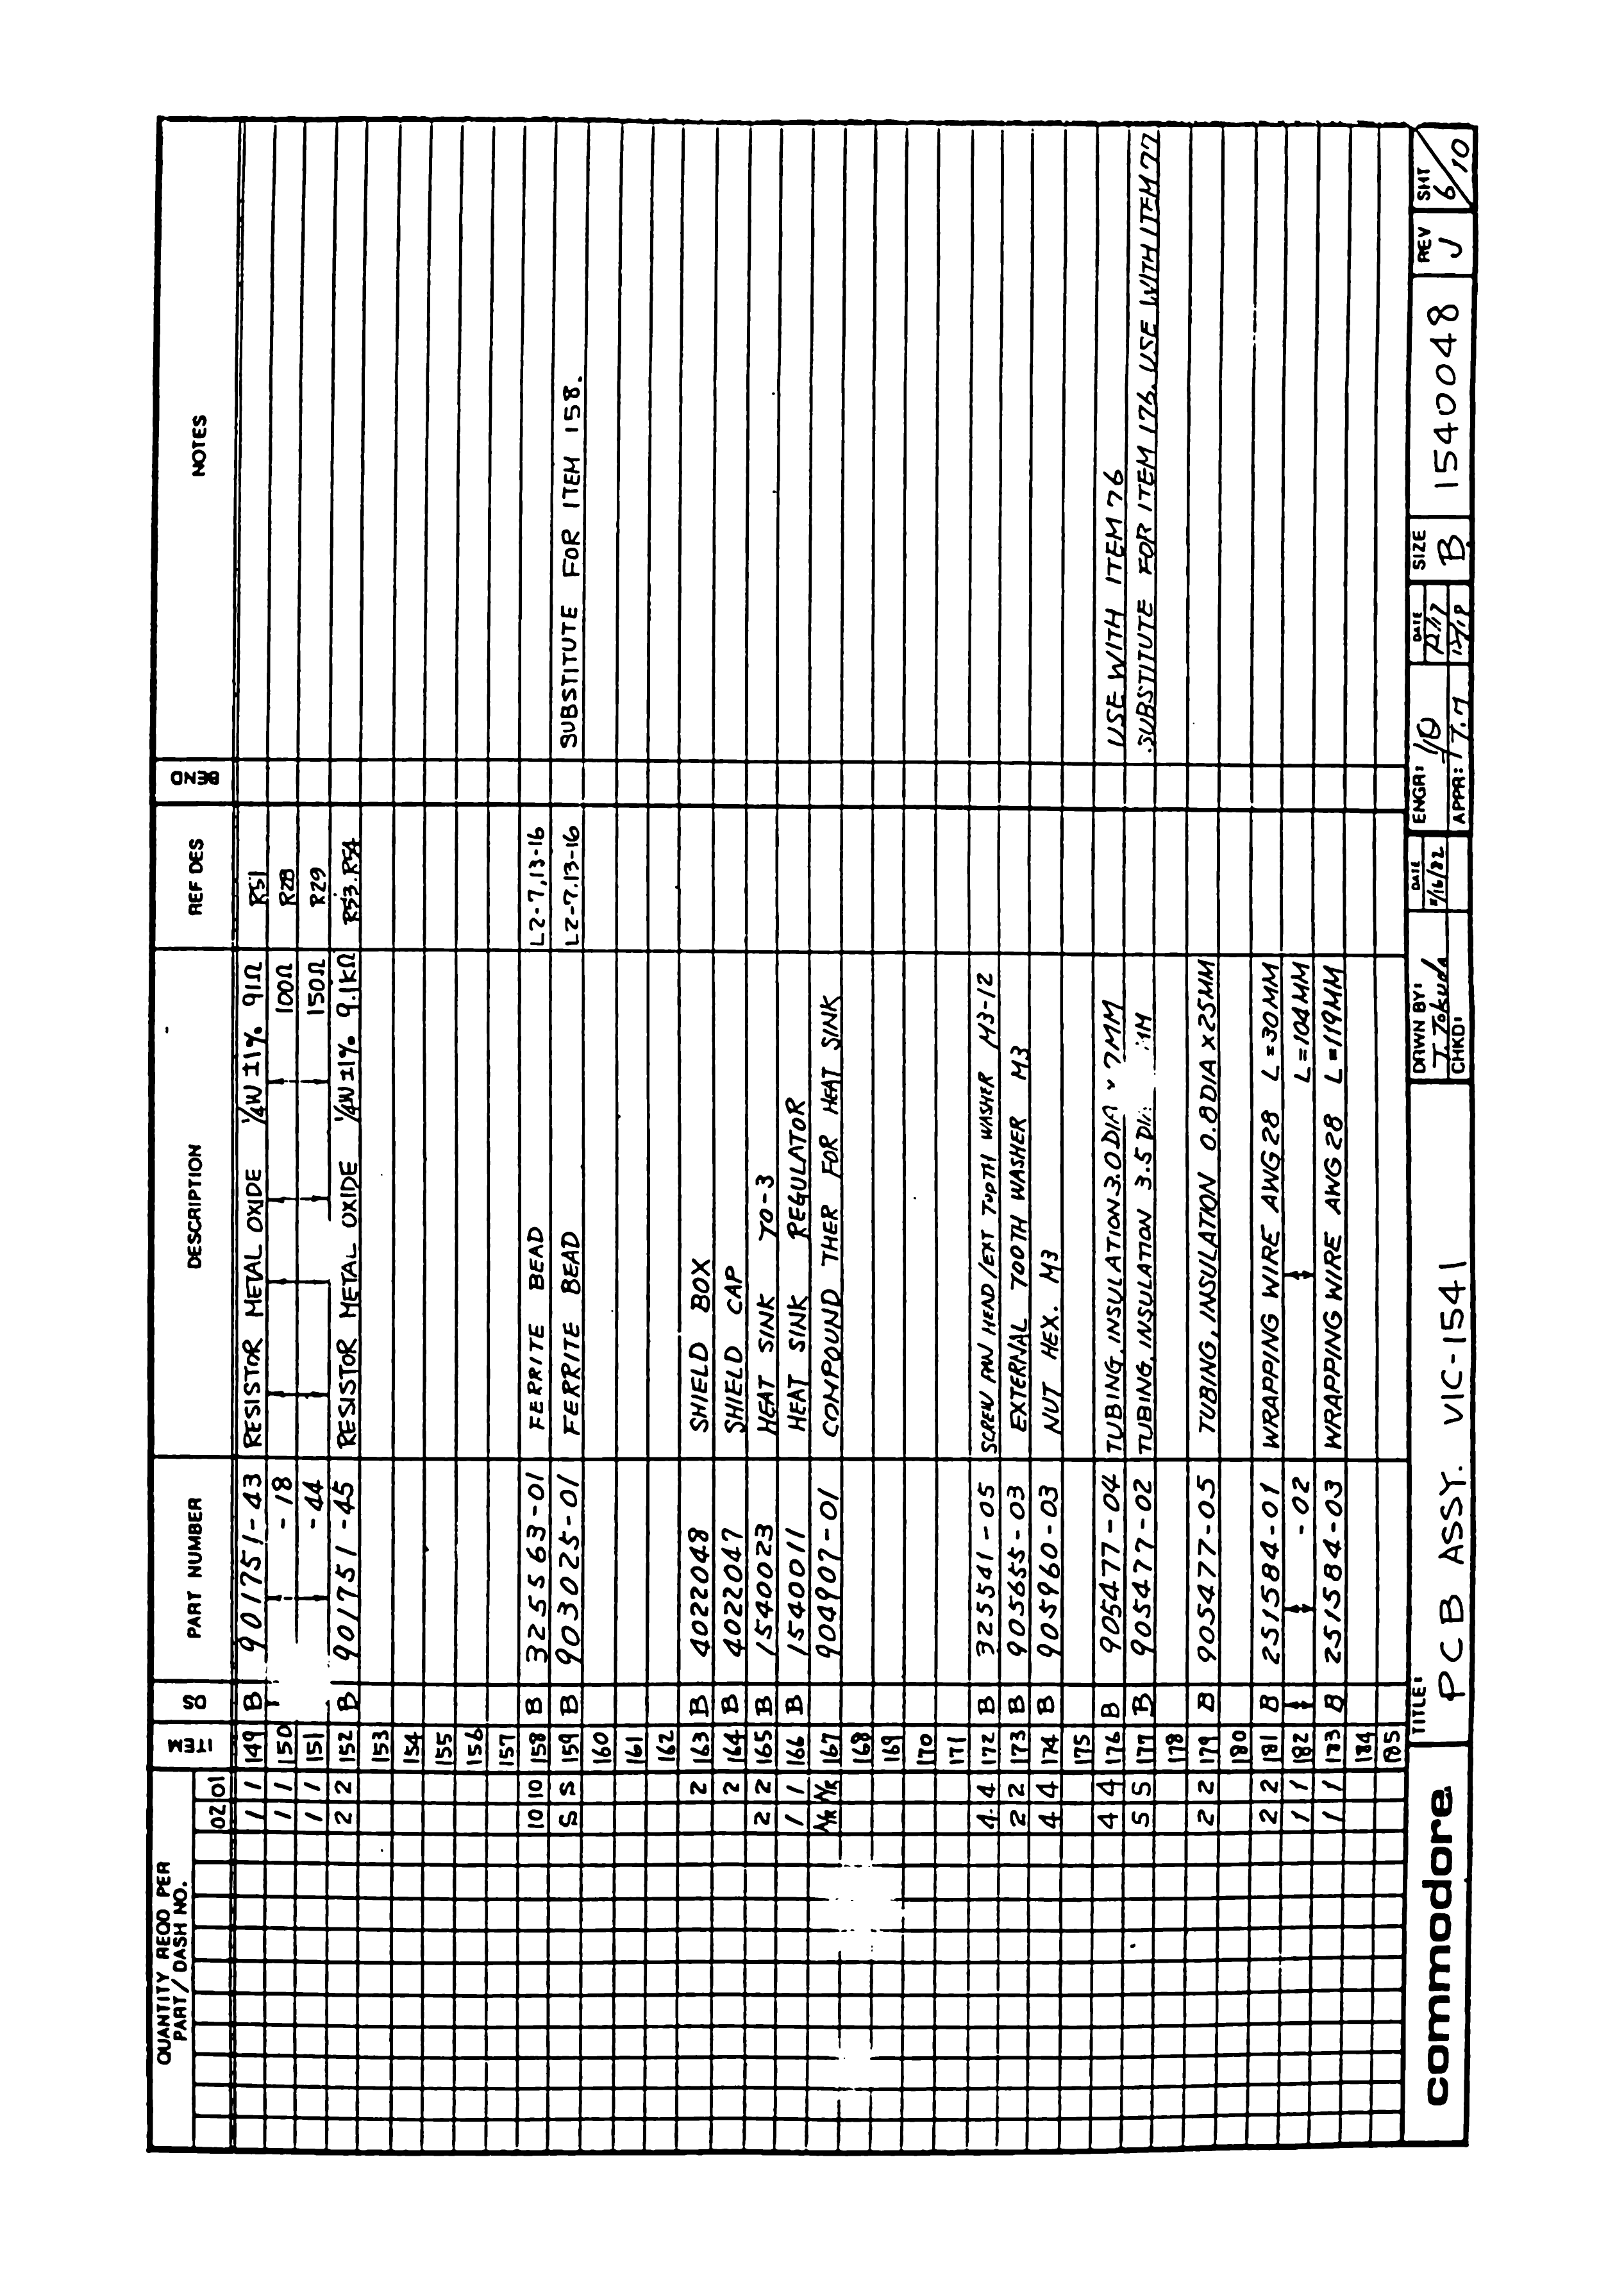 QUANTITY REQD PER PART/DASH NO. ITEM DS PART NUMBER DESCRIPTION REF DES BEND NOTES
02 01
1 1 149 B 901751-43 RESISTOR METAL OXIDE 1/4W ±1% 91Ω R51
1 1 150 -18 100Ω R28
1 1 151 -44 150Ω R29
2 2 152 B 901751-45 RESISTOR METAL OXIDE 1/4W ±1% 9.1KΩ R53.R54
153
154
155
156
157
10 10 158 B 325563-01 FERRITE BEAD L2-7,13-16
S S 159 B 903025-01 FERRITE BEAD L2-7.13-16 SUBSTITUTE FOR ITEM 158.
160
161
162
2 163 B 4022048 SHIELD BOX
2 164 B 4022047 SHIELD CAP
2 2 165 B 1540023 HEAT SINK TO-3
1 1 166 B 1540011 HEAT SINK REGULATOR
167 904907-01 COMPOUND THER FOR HEAT SINK
168
169
170
171
4 4 172 B 325541-05 SCREW PAN HEAD/EXT TOOTH WASHER M3-12
2 2 173 B 905655-03 EXTERNAL TOOTH WASHER M3
4 4 174 B 905960-03 NUT HEX. M3
175
4 4 176 B 905477-04 TUBING, INSULATION 3.0 DIA x 7MM USE WITH ITEM 76
S S 177 B 905477-02 TUBING, INSULATION 3.5 SUBSTITUTE FOR ITEM 176. USE WITH ITEM 77
178
2 2 179 B 905477-05 TUBING, INSULATION 0.8 DIA x 25MM
180
2 2 181 B 251584-01 WRAPPING WIRE AWG 28 L=30MM
1 1 182 -02 L=104MM
1 1 183 B 251584-03 WRAPPING WIRE AWG 28 L=119MM
184
185
commodore TITLE: PCB ASSY. VIC-1541 DRWN BY: J. Tokuda DATE /16/82 ENGR: DATE SIZE B 1540048 REV J SHT 6/10
CHKD: APPR: